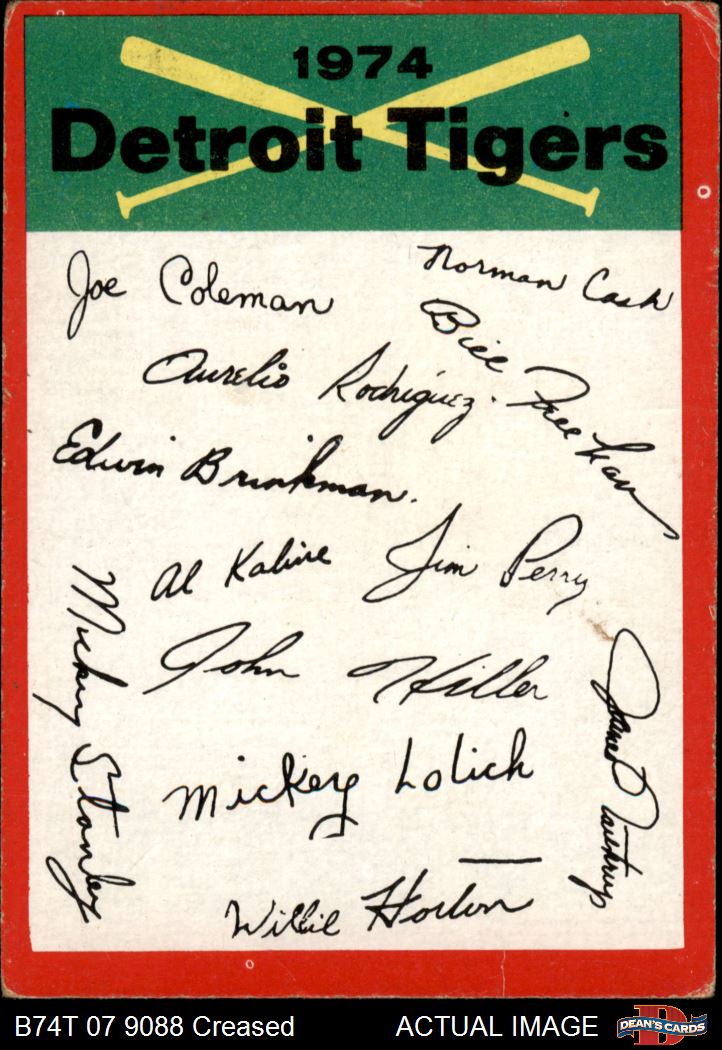 1974
Detroit Tigers
Joe Coleman
Norman Cash
Bill Freehan
Aurelio Rodriguez.
Edwin Brinkman.
Al Kaline
Jim Perry
Mickey Stanley
John Hiller
James Northrup
Mickey Lolich
Willie Horton
B74T 07 9088 Creased
ACTUAL IMAGE
D
DEAN'S CARDS